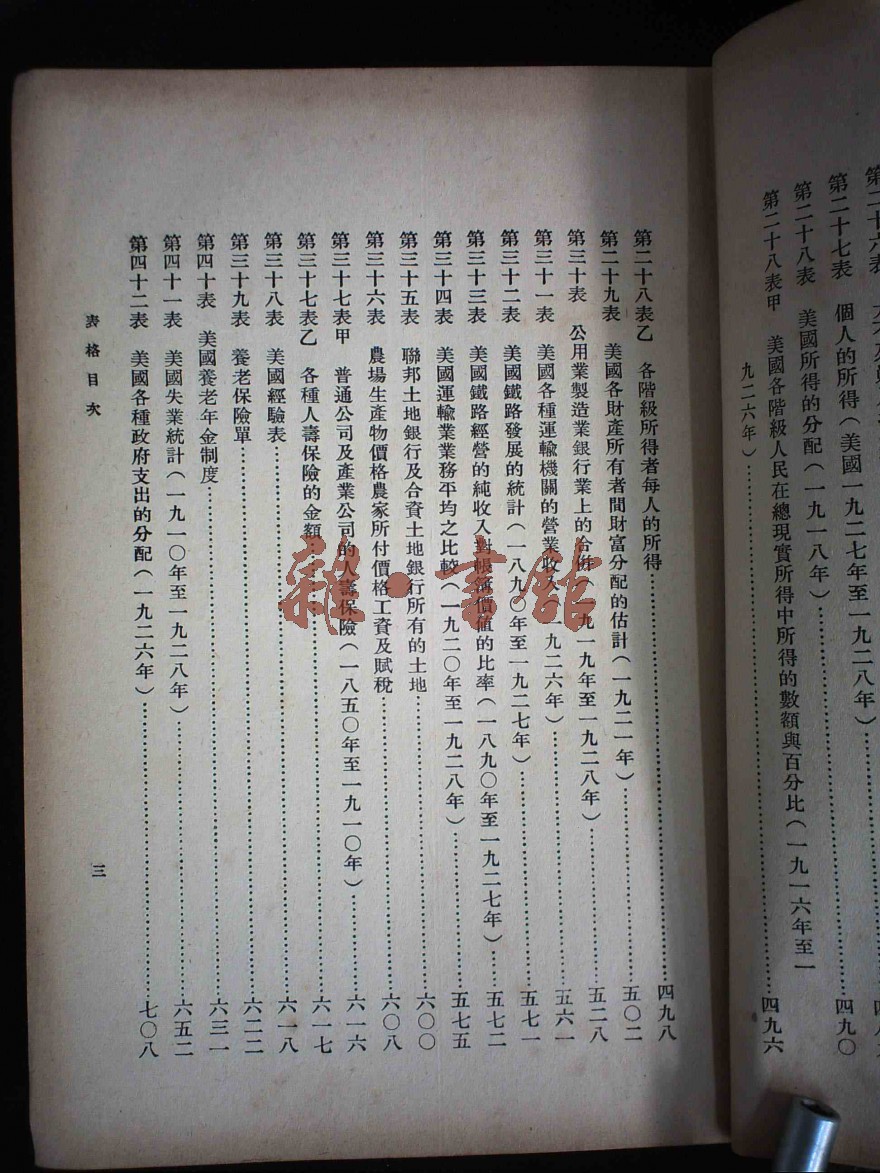 第二十七表　個人的所得（美國一九二七年至一九二八年）……四九〇
第二十八表　美國所得的分配（一九一八年）
第二十八表甲　美國各階級人民在總現實所得中所得的數額與百分比（一九一六年至一
九二六年）……四九六
第二十八表乙　各階級所得者每人的所得……四九八
第二十九表　美國各財產所有者間財富分配的估計（一九二一年）……五〇二
第三十表　公用業製造業銀行業上的合併（一九一九年至一九二八年）……五二八
第三十一表　美國各種運輸機關的營業收入（一九二六年）……五六一
第三十二表　美國鐵路發展的統計（一八九〇年至一九二七年）……五七一
第三十三表　美國鐵路經營的純收入對帳簿價值的比率（一八九〇年至一九二七年）……五七二
第三十四表　美國運輸業業務平均之比較（一九二〇年至一九二八年）……五七五
第三十五表　聯邦土地銀行及合資土地銀行所有的土地……六〇〇
第三十六表　農場生產物價格農家所付價格工資及賦稅……六〇八
第三十七表甲　普通公司及產業公司的人壽保險（一八五〇年至一九一〇年）……六一六
第三十七表乙　各種人壽保險的金額……六一七
第三十八表　美國經驗表……六一八
第三十九表　養老保險單……六二二
第四十表　美國養老年金制度……六三一
第四十一表　美國失業統計（一九一〇年至一九二八年）……六五二
第四十二表　美國各種政府支出的分配（一九二六年）……七〇八
表格目次
三
雜·書館